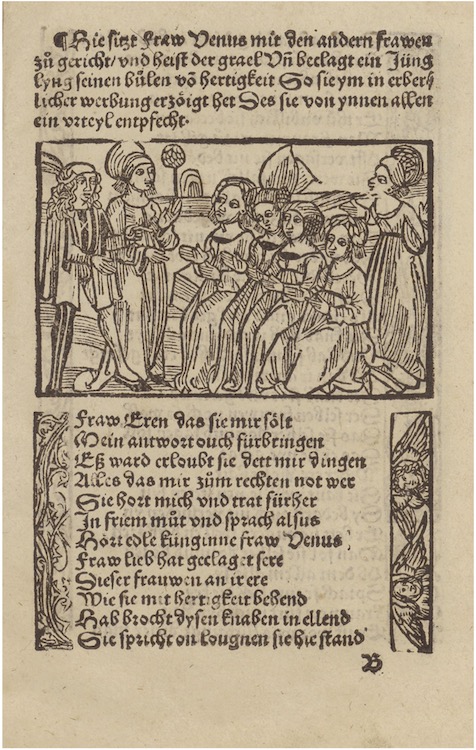 ¶Hie sitzt Fraw Venus mit den andern frawen
zů gericht/ vnd heist der grael Vñ beclagt ein Jüng
lyng seinen bůlen võ hertigkeit So sie ym in erberh
licher werbung erzöigt het Des sie von ynnen allen
ein vrteyl entpfecht.
Fraw Eren das sie mir sölt
Mein antwort ouch fürbringen
Eß ward erloubt sie dett mir dingen
Alles das mir zům rechten not wer
Sie hort mich vnd trat fürher
In friem můt vnd sprach alsus
Hört edle künginne fraw Venus
Fraw lieb hat geclaget sere
Dieser frauwen an ir ere
Wie sie mit hertigkeit behend
Hab brocht dysen knaben in ellend
Sie spricht on lougnen sie hie stand
B